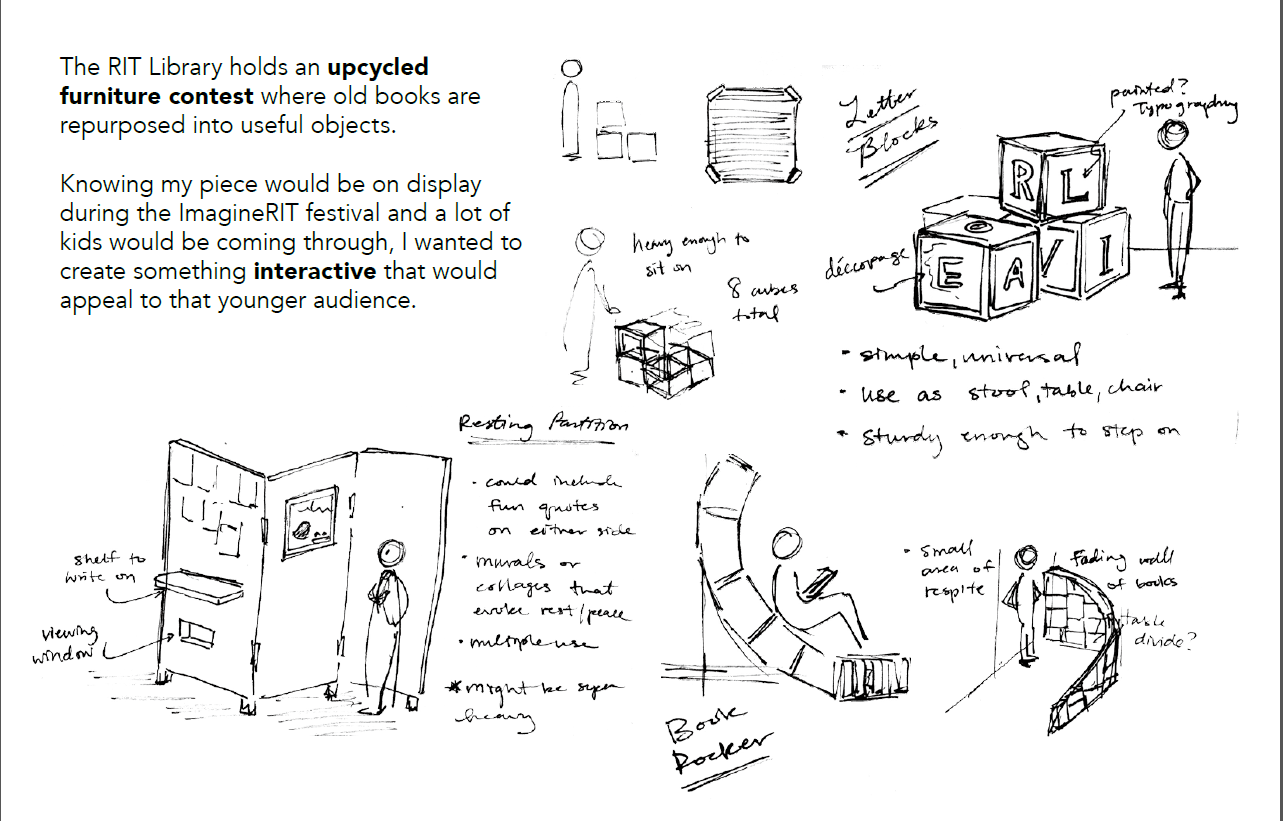 The RIT Library holds an upcycled
furniture contest where old books are
repurposed into useful objects.
Knowing my piece would be on display
during the ImagineRIT festival and a lot of
kids would be coming through, I wanted to
create something interactive that would
appeal to that younger audience.
Letter
Blocks
painted?
Typography
R L
E A V I
découpage
heavy enough to
sit on
8 cubes
total
• simple, universal
• use as stool, table, chair
• sturdy enough to step on
Resting Partition
• could include
fun quotes
on either side
• murals or
collages that
evoke rest/peace
• multiple use
* might be super
heavy
shelf to
write on
viewing
window
Book
Rocker
• small
area of
respite
Fading wall
of books
table
divide?